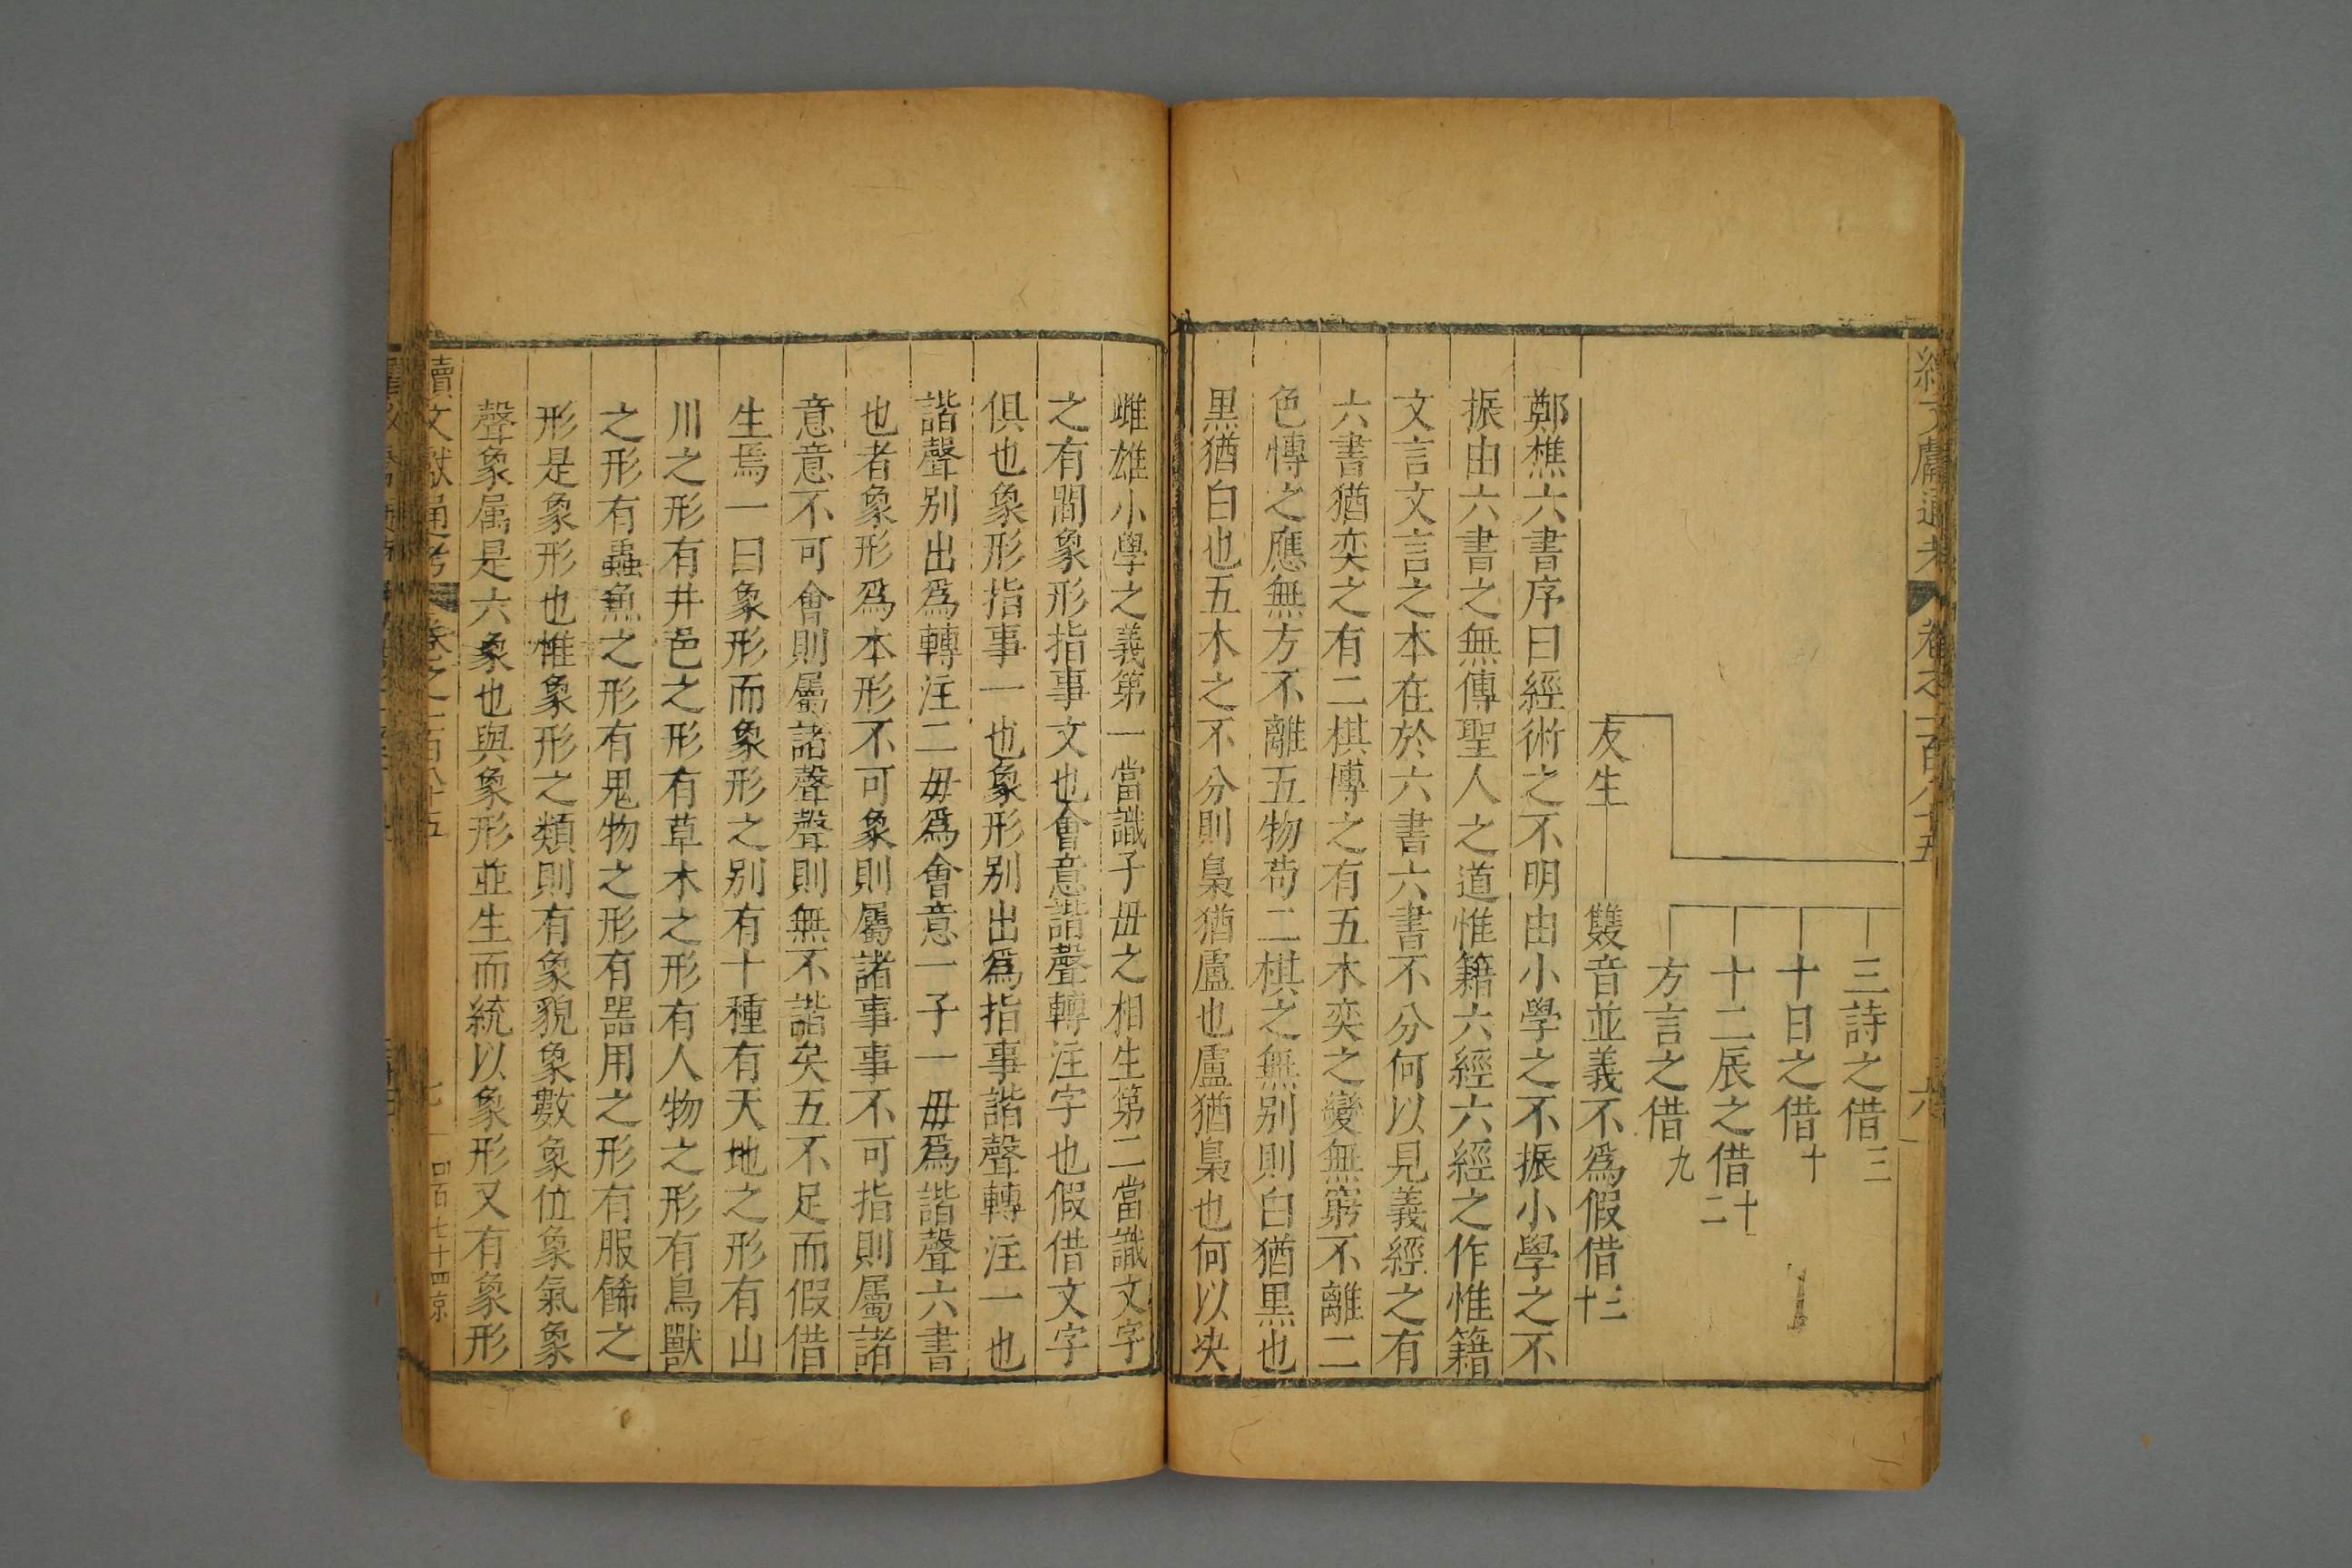 續文獻通考 卷之一百八十五 六
三詩之借三
十日之借十
十二辰之借十二
方言之借九
友生 雙音並義不爲假借十三
鄭樵六書序曰經術之不明由小學之不振小學之不
振由六書之無傳聖人之道惟籍六經六經之作惟籍
文言文言之本在於六書六書不分何以見義經之有
六書猶奕之有二棋博之有五木奕之變無窮不離二
色慱之應無方不離五物苟二棋之無别則白猶黒也
黒猶白也五木之不分則梟猶盧也盧猶梟也何以决
雌雄小學之義第一當識子毋之相生第二當識文字
之有間象形指事文也會意諧聲轉注字也假借文字
俱也象形指事一也象形别出爲指事諧聲轉注一也
諧聲别出爲轉注二毋爲會意一子一毋爲諧聲六書
也者象形爲本形不可象則屬諸事事不可指則屬諸
意意不可會則屬諸聲聲則無不諧矣五不足而假借
生焉一曰象形而象形之别有十種有天地之形有山
川之形有井邑之形有草木之形有人物之形有鳥獸
之形有蟲魚之形有鬼物之形有器用之形有服餙之
形是象形也惟象形之類則有象貌象數象位象氣象
聲象属是六象也與象形並生而統以象形又有象形
續文獻通考 卷之一百八十五 七 四百七十四 京